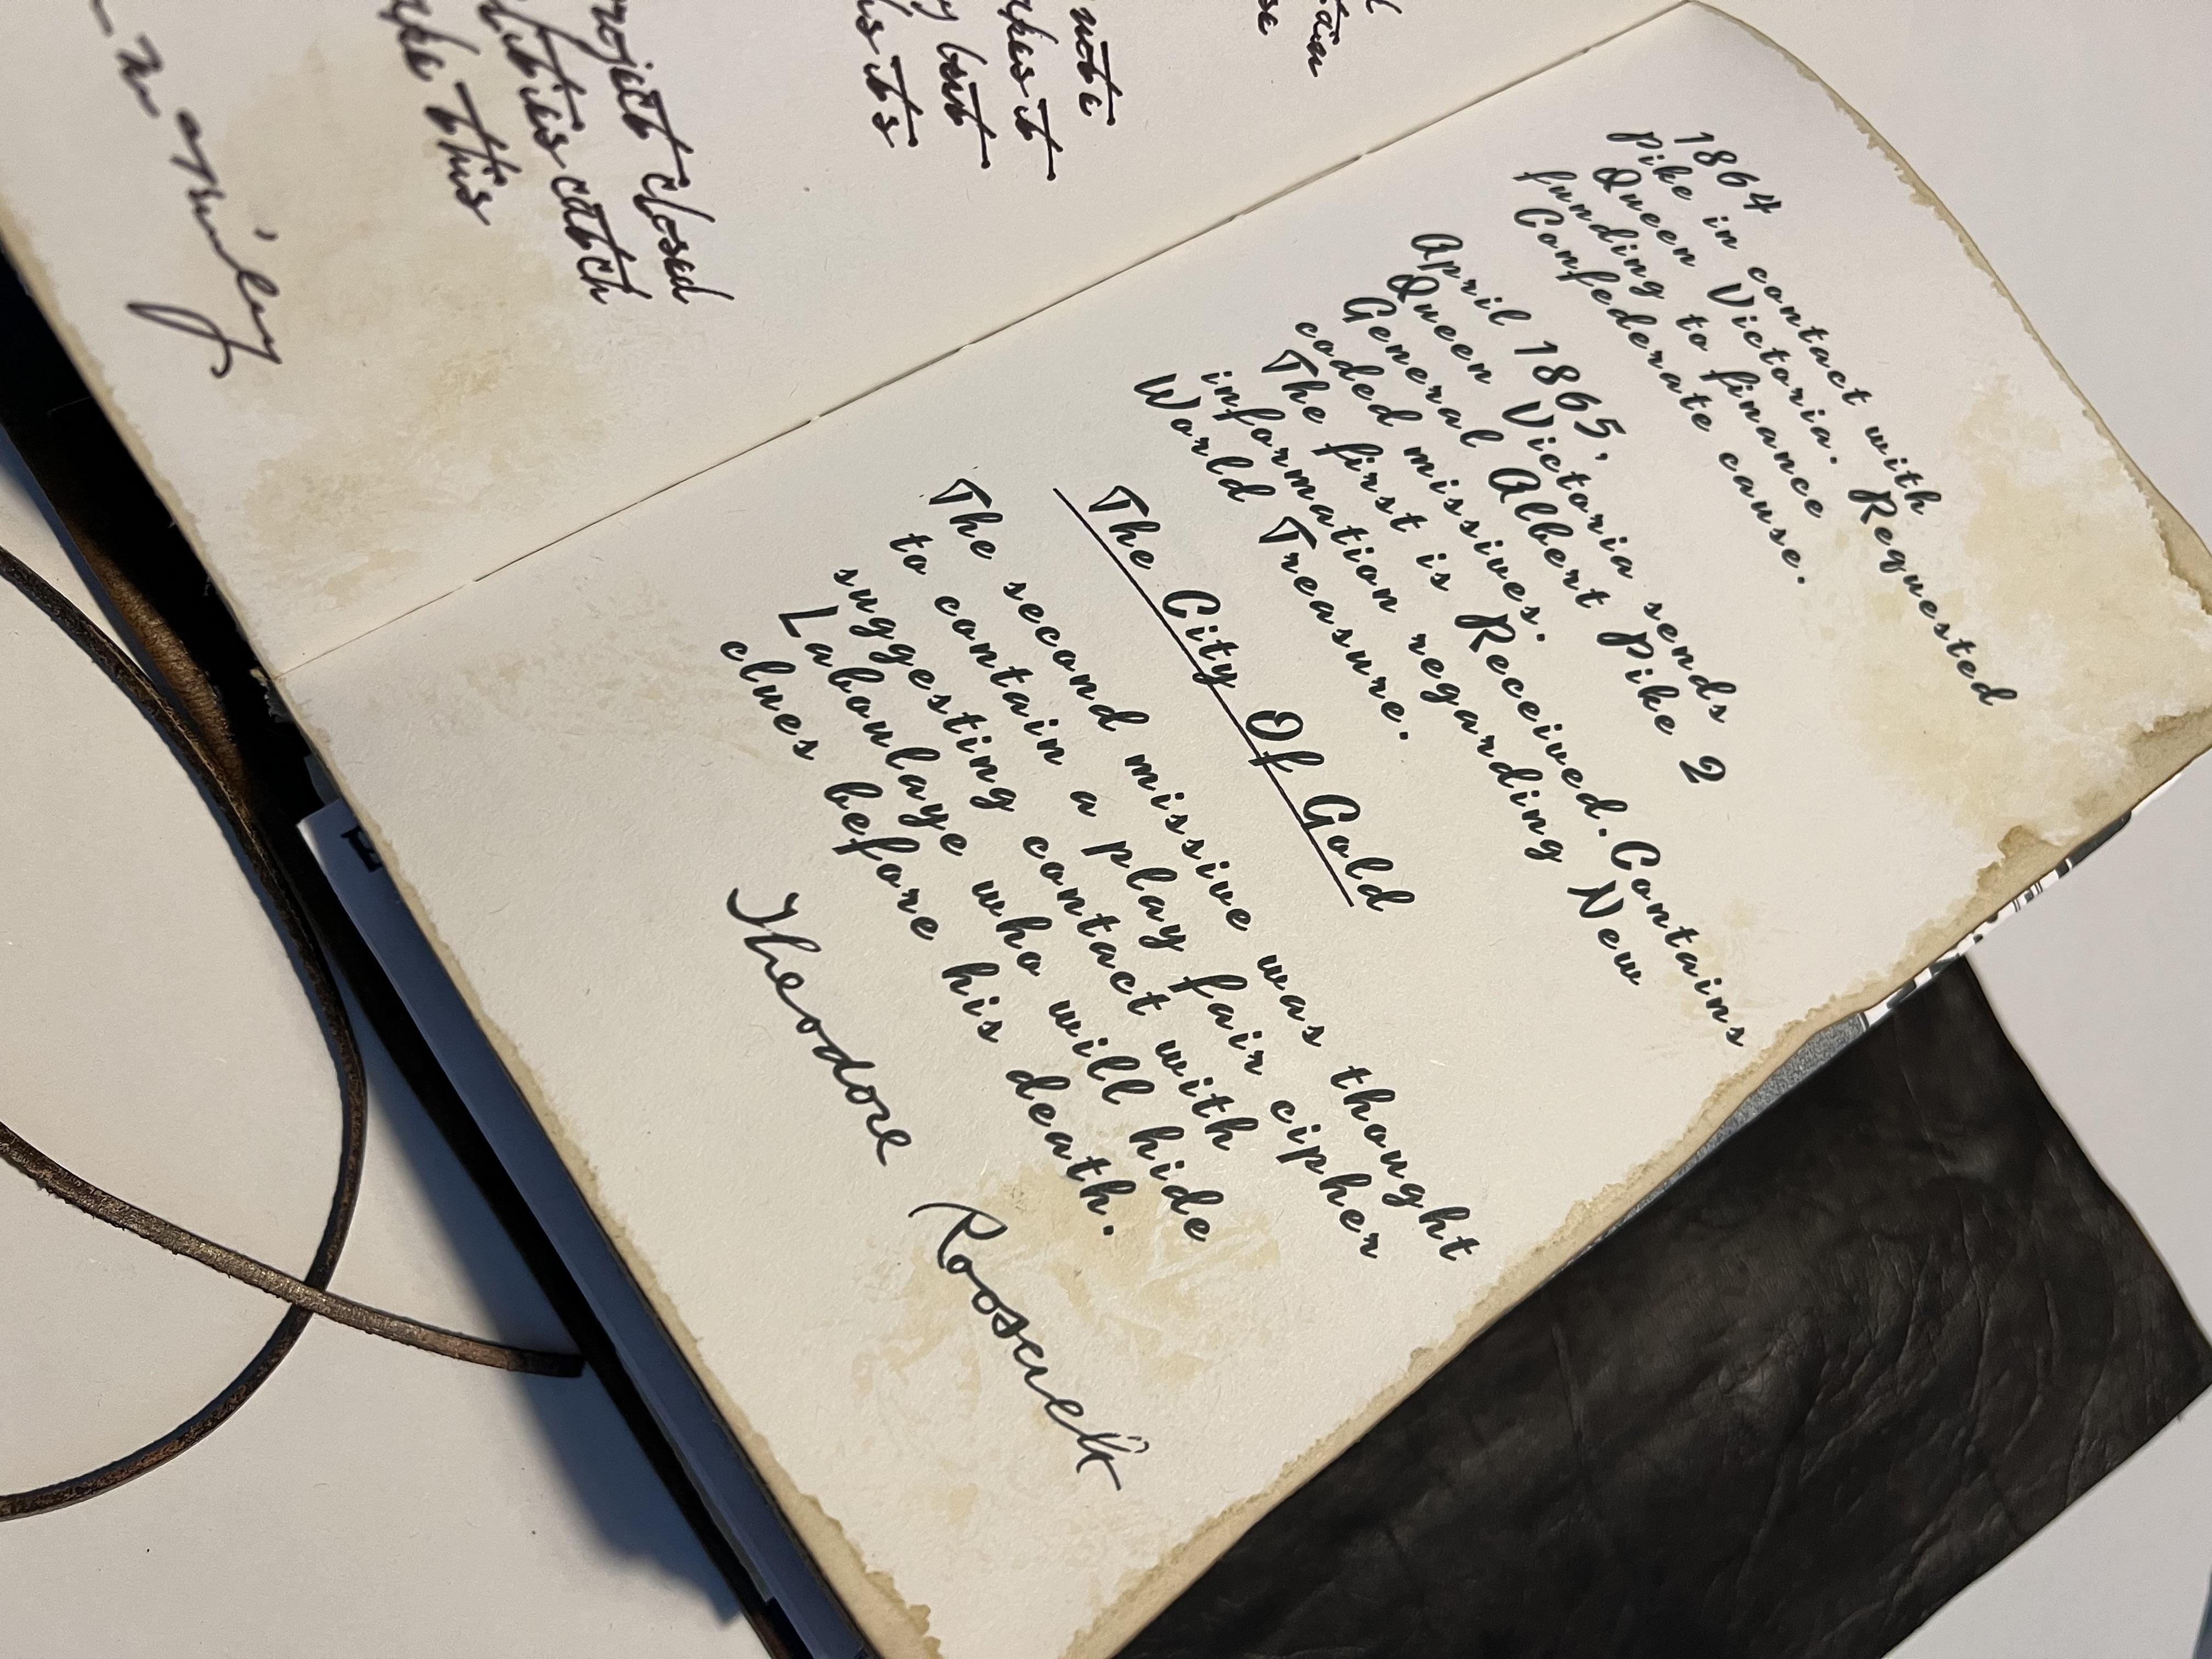 project closed
catch
ake this
note
akes it
y best
is its
1864
Pike in contact with
Queen Victoria. Requested
funding to finance
Confederate cause.
April 1865,
Queen Victoria sends
General Albert Pike 2
coded missives.
The first is Received. Contains
information regarding New
World Treasure.
The City Of Gold
The second missive was thought
to contain a play fair cipher
suggesting contact with
Laboulaye who will hide
clues before his death.
Theodore Roosevelt